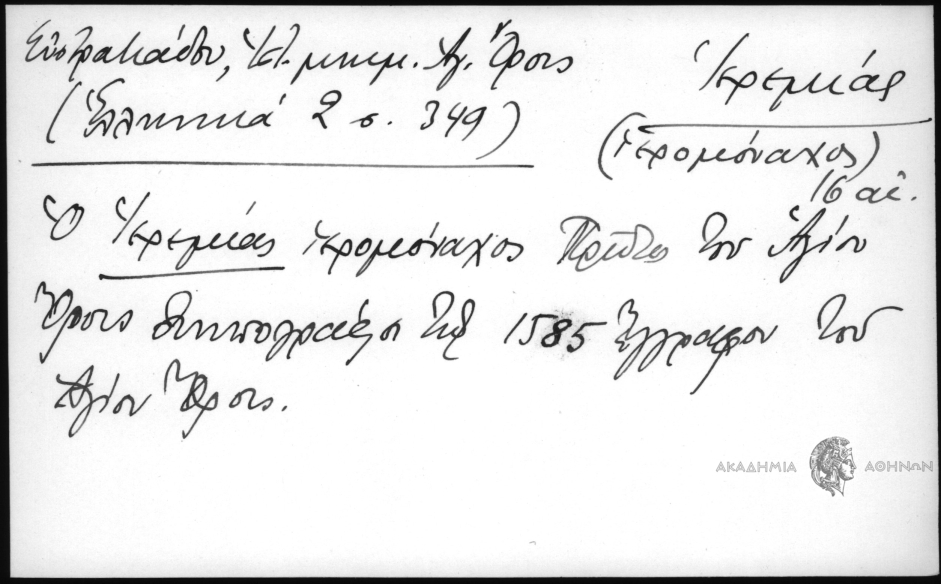 Εὐστρατιάδου, Ἱστ. μνημ. Ἁγ. Ὄρους
(Ἑλληνικά 2 σ. 349)
Ἱερεμίας
(ἱερομόναχος)
16 αἰ.
Ὁ Ἱερεμίας ἱερομόναχος Πρῶτος τοῦ Ἁγίου
Ὄρους συνυπογράφει τῷ 1585 ἔγγραφον τοῦ
Ἁγίου Ὄρους.
ΑΚΑΔΗΜΙΑ ΑΘΗΝΩΝ